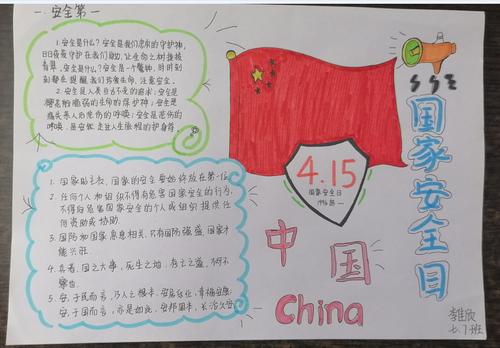 一.安全第一
1.安全是什么?安全是我们忠实的守护神,
日日夜夜守护在我们身边,让生命之树挂接
着果。安全是什么?安全是一个警钟,时时刻
刻都在提醒我们珍爱生命,注意安全。
2.安全是人类亘古不变的追求;安全是
脆弱的生命的保护神;安全是
的呼唤;安全是悲伤的
呼唤,是安 走过人生旅程的护身符。
4.15
国家安全日
国家安全日
1. 国家 国家的安全要始终放在第一位
2. 任何个人和组织不得有危害国家安全的行为,
不得向危害国家安全的个人或组织提供任
何资助或协助.
3. 国防和国家息息相关,只有国防强盛,国家才
能兴旺.
4. 兵者,国之大事,死生之地,存亡之道,不可不
察也.
5. 安,于民而言,乃人之根本,安居乐业,幸福安康.
安,于国而言,亦是如此,安邦固本,长治久安.
中国
China
七.7班